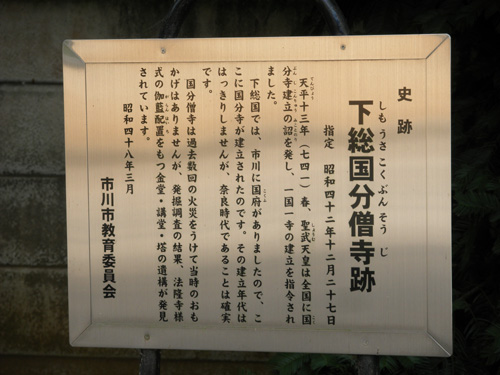 史跡
しもうさこくぶんそうじ
下総国分僧寺跡
指定 昭和四十二年十二月二十七日
てんぴょう しょうむ
天平十三年（七四一）春、聖武天皇は全国に国
ぶんじこんりゅう みことのり
分寺建立の詔を発し、一国一寺の建立を指令され
ました。
下総国では、市川に国府がありましたので、こ
こに国分寺が建立されたのです。その建立年代は
はっきりしませんが、奈良時代であることは確実
です。
国分僧寺は過去数回の火災をうけて当時のおも
かげはありませんが、発掘調査の結果、法隆寺様
式の伽藍配置をもつ金堂・講堂・塔の遺構が発見
されています。
昭和四十八年三月
市川市教育委員会